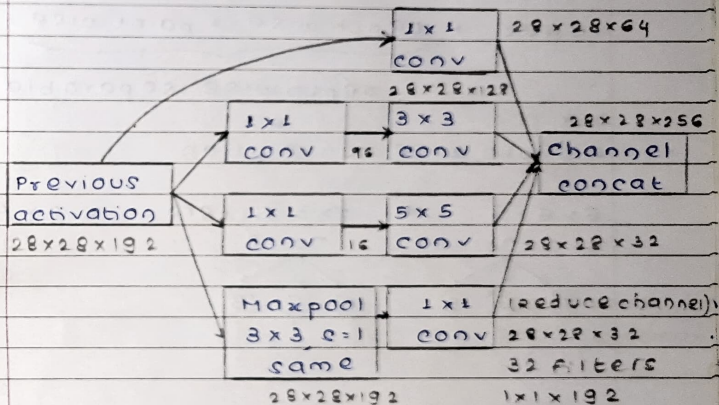 1 × 1
conv
28 × 28 × 64
28 × 28 × 128
1 × 1
conv
96
3 × 3
conv
28 × 28 × 256
channel
concat
Previous
activation
28 × 28 × 192
1 × 1
conv
16
5 × 5
conv
28 × 28 × 32
Maxpool
3 × 3, s=1
same
28 × 28 × 192
1 × 1
conv
(Reduce channel)
28 × 28 × 32
32 filters
1 × 1 × 192